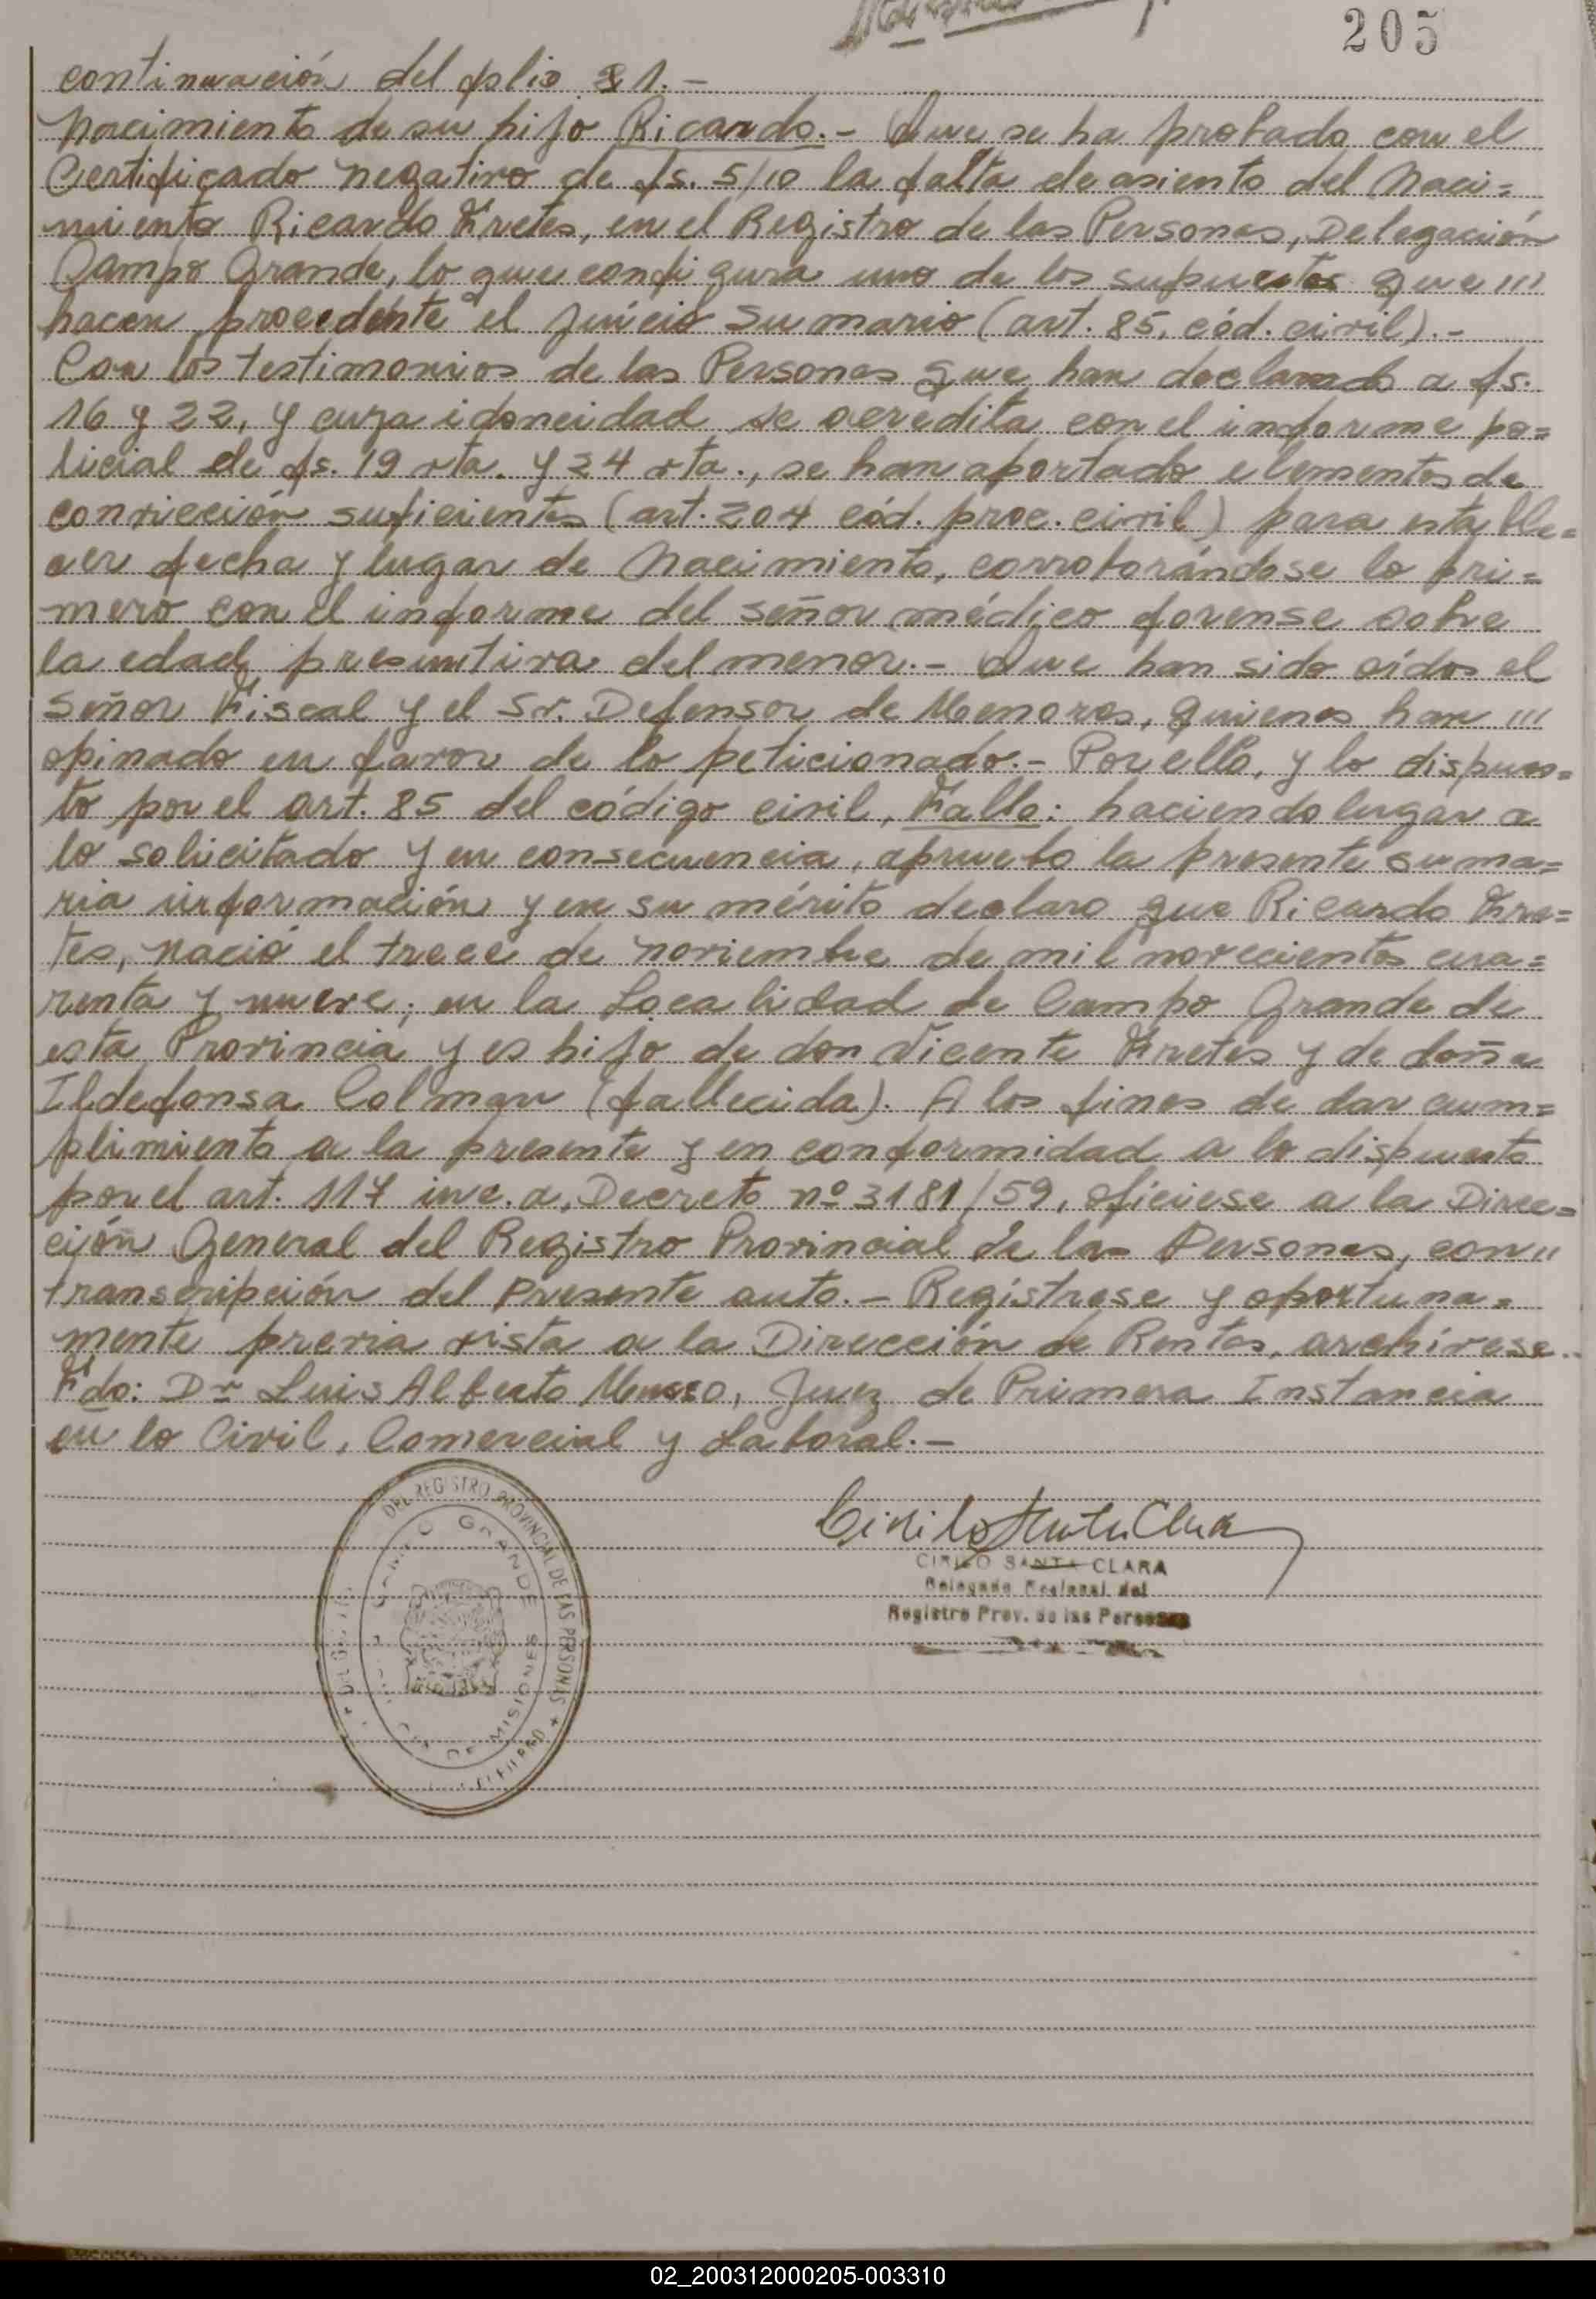 205
continuación del folio 81.-
Nacimiento de su hijo Ricardo.- Que se ha probado con el
Certificado negativo de fs. 5/10 la falta de asiento del Naci=
miento Ricardo Fretes, en el Registro de las Personas, Delegación
Campo Grande, lo que configura uno de los supuestos que '''
hacen procedente el juicio sumario (art. 85, cód. civil).-
Con los testimonios de las Personas que han declarado a fs.
16 y 22, y cuya idoneidad se acredita con el informe po=
licial de fs. 19 vta. y 24 vta., se han aportado elementos de
convicción suficientes (art. 204 cód. proc. civil) para estable=
cer fecha y lugar de Nacimiento, corroborándose lo pri=
mero con el informe del señor médico forense sobre
la edad presuntiva del menor.- Que han sido oídos el
Señor Fiscal y el Sr. Defensor de Menores, quienes han '''
opinado en favor de lo peticionado.- Por ello, y lo dispues=
to por el art. 85 del código civil, Fallo: haciendo lugar a
lo solicitado y en consecuencia, apruebo la presente suma=
ria información y en su mérito declaro que Ricardo Fre=
tes, nació el trece de noviembre de mil novecientos cua=
renta y nueve; en la Localidad de Campo Grande de
esta Provincia y es hijo de don Vicente Fretes y de doña
Ildefonsa Colman (fallecida). A los fines de dar cum=
plimiento a la presente y en conformidad a lo dispuesto
por el art. 117 inc. a, Decreto nº 3181/59, ofíciese a la Direc=
ción General del Registro Provincial de las Personas, con ''
transcripción del presente auto.- Regístrese y oportuna=
mente previa vista a la Dirección de Rentas, archívese.-
Fdo: Dr Luis Alberto Musso, Juez de Primera Instancia
en lo Civil, Comercial y Laboral.-
DEL REGISTRO PROVINCIAL DE LAS PERSONAS
CAMPO GRANDE
DE MISIONES
Cirilo Santa Clara
CIRILO SANTA CLARA
Delegado Regional del
Registro Prov. de las Personas
02_200312000205-003310